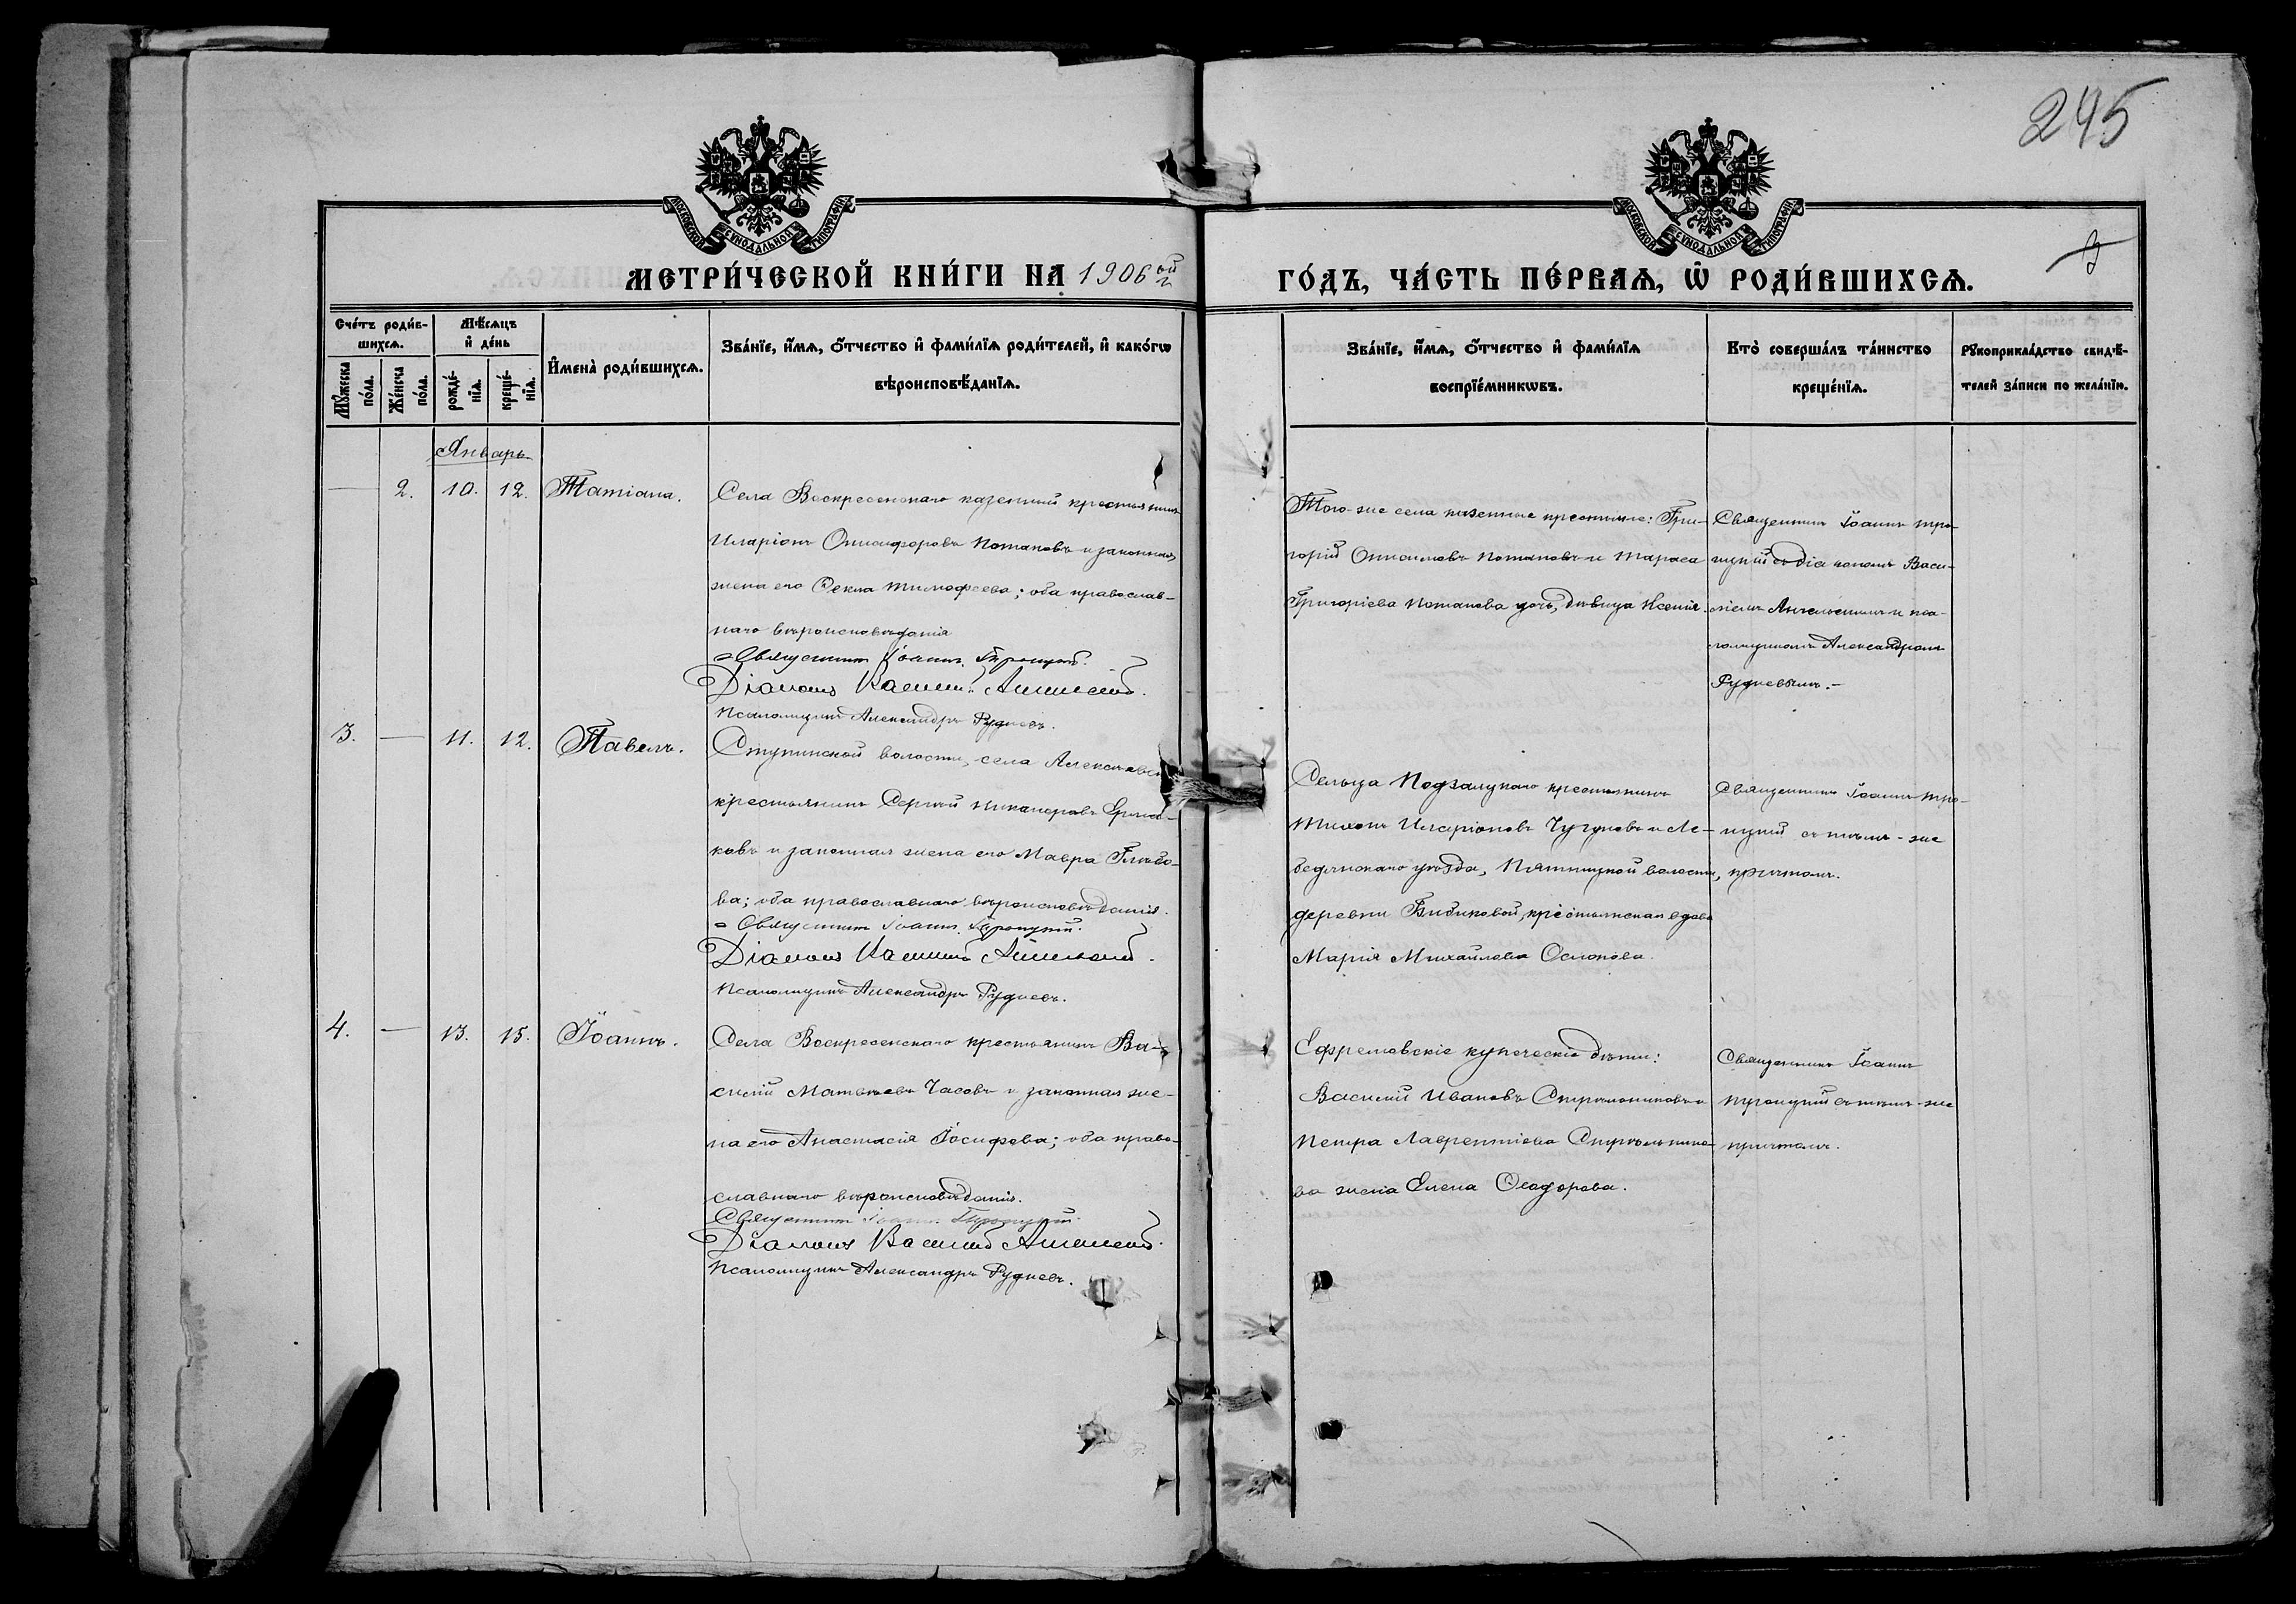 245
МОСКОВСКОЙ СѴНОДАЛЬНОЙ ТИПОГРАФІИ
МОСКОВСКОЙ СѴНОДАЛЬНОЙ ТИПОГРАФІИ
МЕТРИ́ЧЕСКОЙ КНИ́ГИ НА 1906 ой
ГО́ДЪ, ЧА́СТЬ ПЕ́РВАѦ, Ѡ҆ РОДИ́ВШИХСѦ.
Сче́тъ роди́в-
шихсѧ.
Мѣ́сѧцъ
и҆ де́нь
Мꙋ́жеска
по́ла.
Же́нска
по́ла.
рожде́-
нїѧ.
креще́-
нїѧ.
И҆мена̀ роди́вшихсѧ.
Зва́нїе, и҆́мѧ, ѻ҆́тчество и҆ фами́лїѧ роди́телей, и҆ како́гѡ
вѣроисповѣ́данїѧ.
Зва́нїе, и҆́мѧ, ѻ҆́тчество и҆ фами́лїѧ
воспрїе́мникѡвъ.
Кто̀ соверша́лъ та́инство
креще́нїѧ.
Рꙋкоприкла́дство свидѣ́-
телей за́писи по жела́нїю.
Январь
— 2. 10. 12. Татіана.
Села Воскресенскаго казенный крестьянинъ
Иларіонъ Онисифоровъ Потаповъ и законная
жена его Ѳекла Тимофеева; оба православ-
наго вѣроисповѣданія
Священникъ Іоаннъ Троицкій.
Діаконъ Василій
Псаломщикъ Александръ Рудневъ.
Того-же села казенные крестьяне: Гри-
горій Потаповъ и Тараса
Григоріева Потапова дочь, дѣвица Ксенія.
Священникъ Іоаннъ Тро-
ицкій съ діакономъ Васи-
ліемъ и пса-
ломщикомъ Александромъ
Рудневымъ.-
3. — 11. 12. Павелъ.
Ступинской волости, села
крестьянинъ Сергѣй Никаноровъ Ерма-
ковъ и законная жена его Мавра Глѣбо-
ва; оба православнаго вѣроисповѣданія.
Священникъ Іоаннъ Троицкій.
Діаконъ Василій
Псаломщикъ Александръ Рудневъ.
Сельца крестьянинъ
Тихонъ Иларіоновъ Чугуновъ и Ле-
бедянскаго уѣзда, Пятницкой волости,
деревни Бибиковой, крестьянская вдова
Марія Михайлова
Священникъ Іоаннъ Тро-
ицкій съ тѣмъ-же
причтомъ.
4. — 13. 15. Іоаннъ.
Села Воскресенскаго крестьянинъ Ва-
силій Матвѣевъ Часовъ и законная же-
на его Анастасія Іосифова; оба право-
славнаго вѣроисповѣданія.
Священникъ Іоаннъ Троицкій.
Діаконъ Василій
Псаломщикъ Александръ Рудневъ.
Ефремовскіе купеческіе дѣти:
Василій Ивановъ Стрѣльниковъ и
Петра Лаврентіева Стрѣльнико-
ва жена Елена Ѳеодорова.
Священникъ Іоаннъ
Троицкій съ тѣмъ-же
причтомъ.